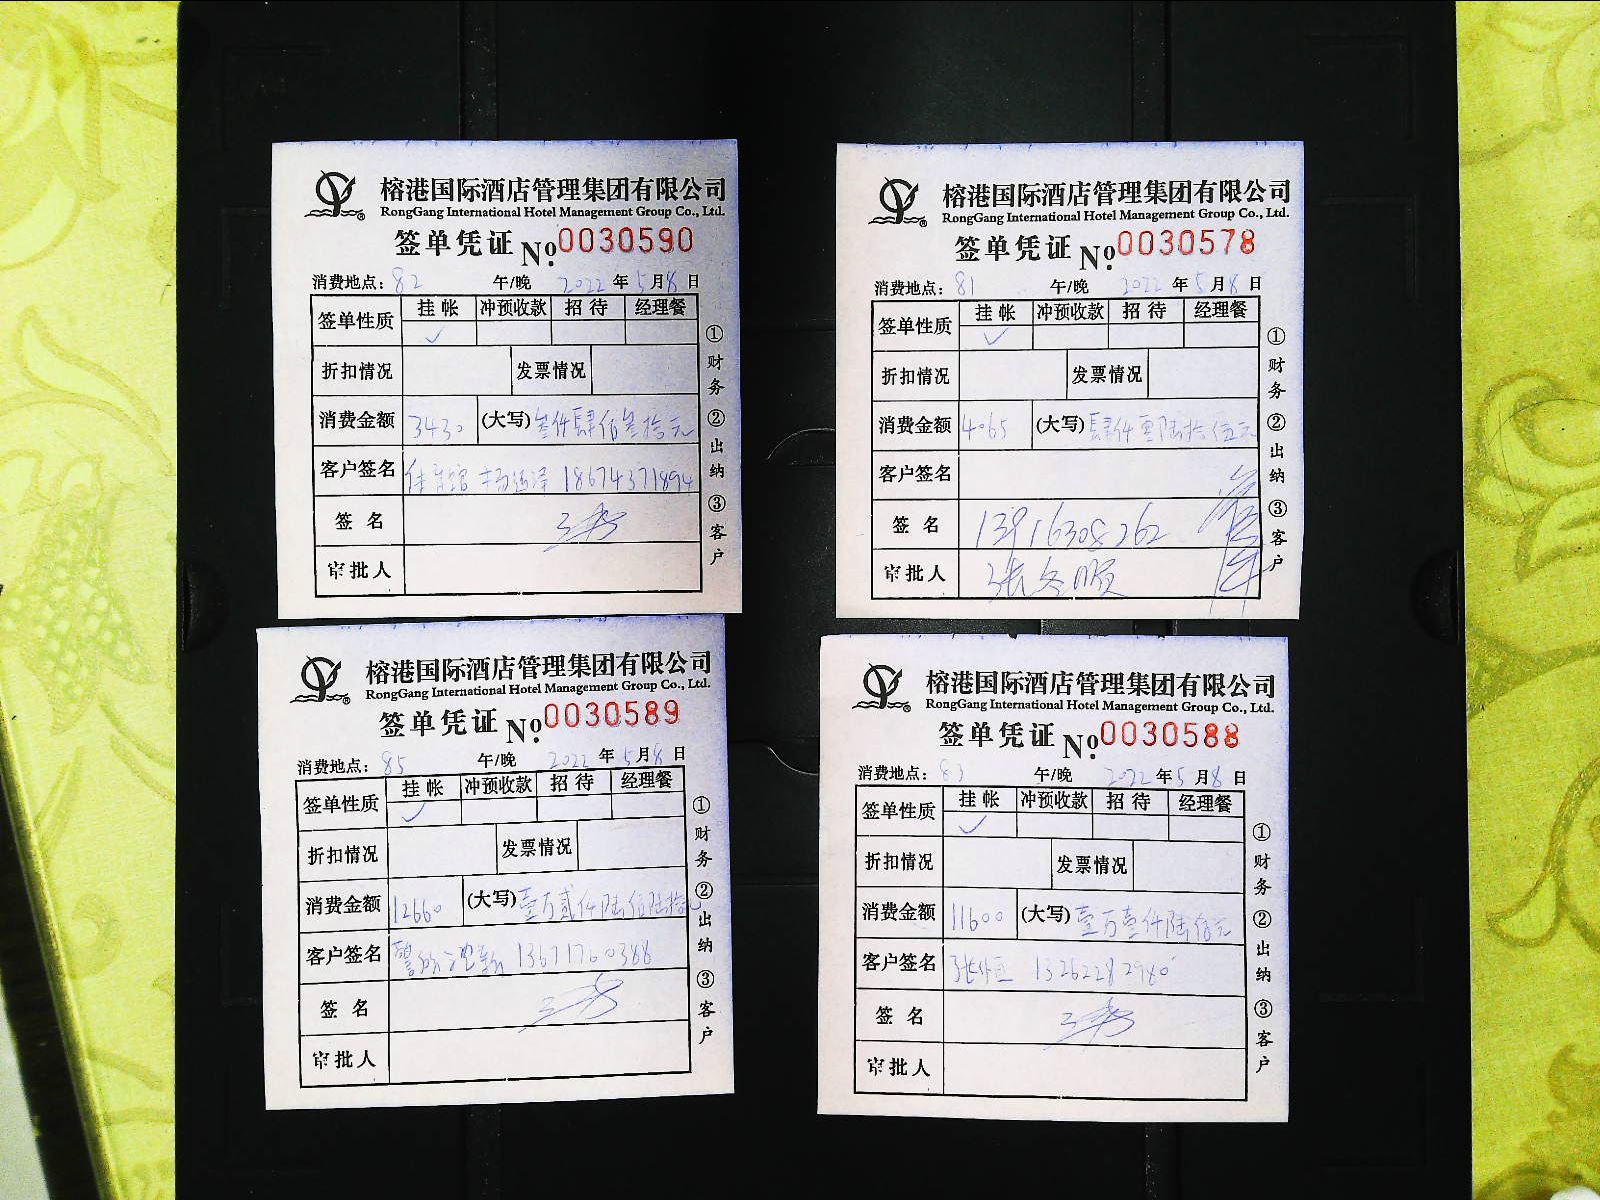 榕港国际酒店管理集团有限公司
RongGang International Hotel Management Group Co., Ltd.
签单凭证 No. 0030590
消费地点：82 午/晚 2022年5月8日
签单性质 挂帐 冲预收款 招待 经理餐
✓
折扣情况 发票情况
消费金额 3430 (大写) 叁仟肆佰叁拾元
客户签名 18674371894
签名
审批人
①财务 ②出纳 ③客户
榕港国际酒店管理集团有限公司
RongGang International Hotel Management Group Co., Ltd.
签单凭证 No. 0030578
消费地点：81 午/晚 2022年5月8日
签单性质 挂帐 冲预收款 招待 经理餐
✓
折扣情况 发票情况
消费金额 4065 (大写) 肆仟零陆拾伍元
客户签名
签名 13916308262
审批人
①财务 ②出纳 ③客户
榕港国际酒店管理集团有限公司
RongGang International Hotel Management Group Co., Ltd.
签单凭证 No. 0030589
消费地点：85 午/晚 2022年5月8日
签单性质 挂帐 冲预收款 招待 经理餐
✓
折扣情况 发票情况
消费金额 12660 (大写) 壹万贰仟陆佰陆拾元
客户签名 13671760388
签名
审批人
①财务 ②出纳 ③客户
榕港国际酒店管理集团有限公司
RongGang International Hotel Management Group Co., Ltd.
签单凭证 No. 0030588
消费地点：83 午/晚 2022年5月8日
签单性质 挂帐 冲预收款 招待 经理餐
✓
折扣情况 发票情况
消费金额 11600 (大写) 壹万壹仟陆佰元
客户签名 13262282980
签名
审批人
①财务 ②出纳 ③客户